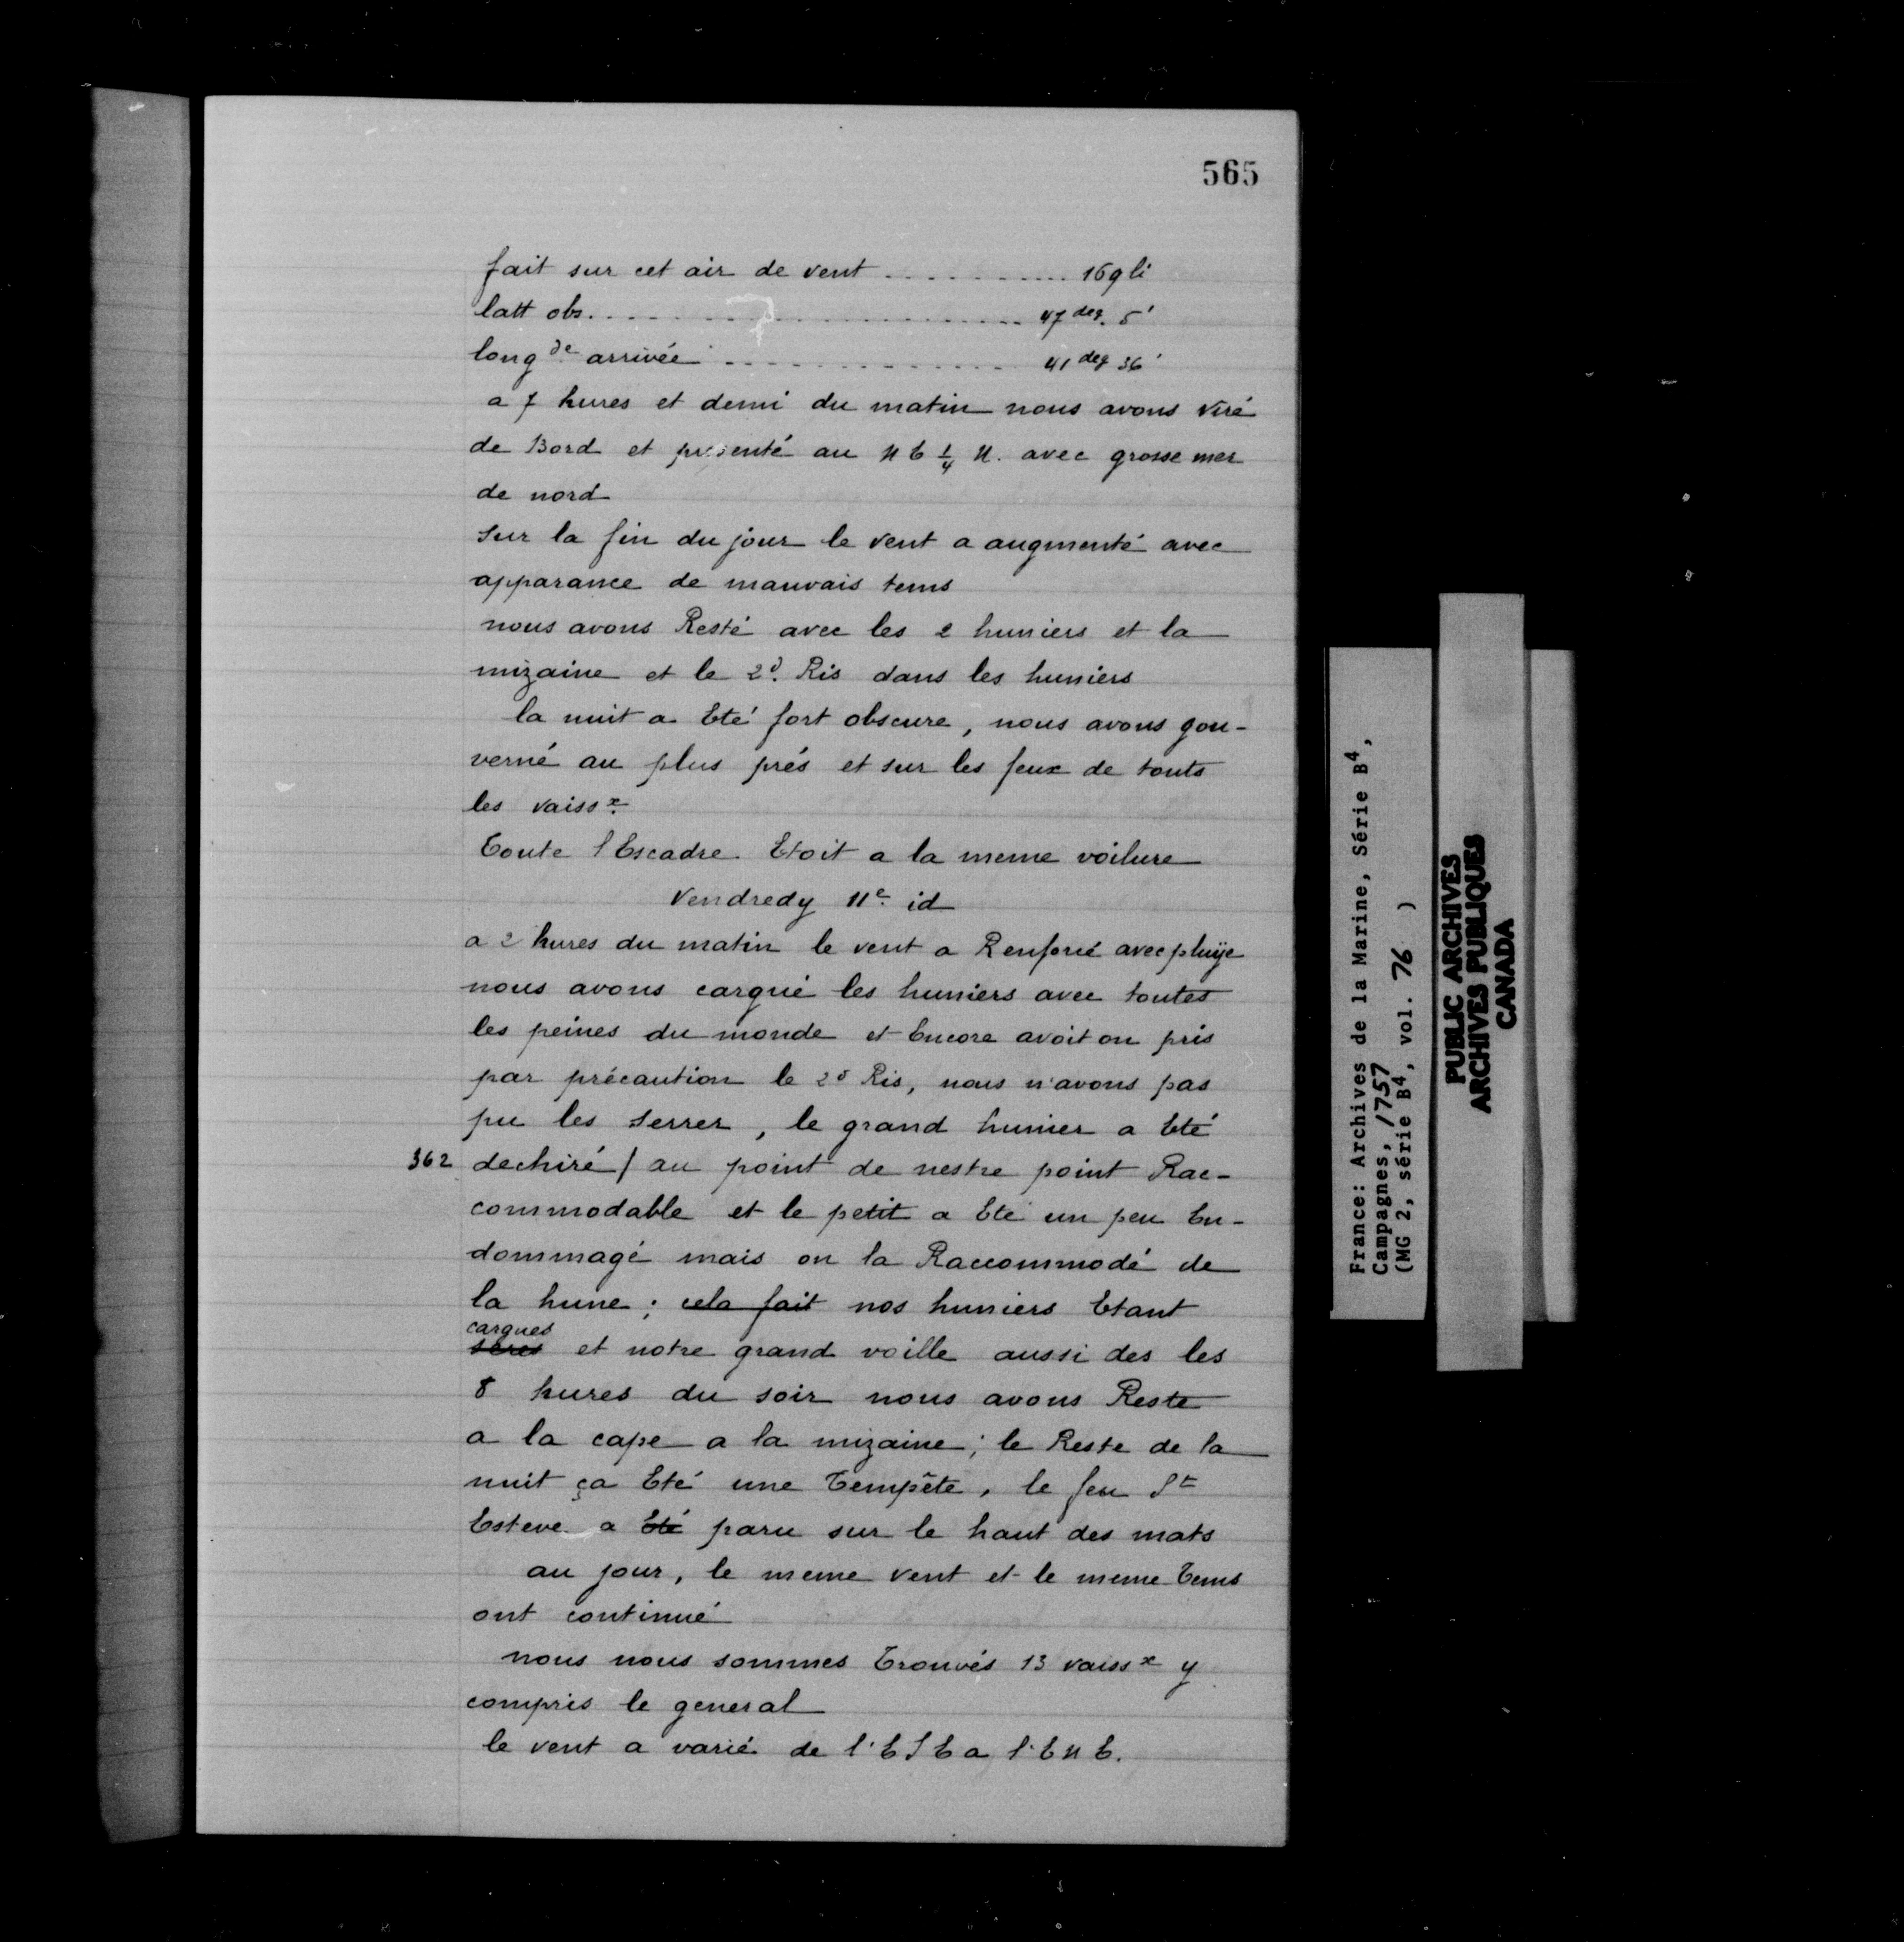 565
fait sur cet air de vent ............ 16 g li
latt obs. ........................ 47 deg. 5'
long de arrivée .............. 41 deg 36'
a 7 hures et demi du matin nous avons viré
de Bord et presenté au N E 1/4 N. avec grosse mer
de nord
sur la fin du jour le vent a augmenté avec
apparance de mauvais tems
nous avons Resté avec les 2 huniers et la
mizaine et le 2d. Ris dans les huniers
la nuit a Eté fort obscure, nous avons gou-
verné au plus prés et sur les feux de touts
les vaissx.
Toute l Escadre Etoit a la meme voilure
Vendredy 11e id
a 2 hures du matin le vent a Renforcé avec pluÿe
nous avons cargué les huniers avec toutes
les peines du monde et Encore avoit on pris
par précaution le 2d Ris, nous n'avons pas
pu les serrer, le grand hunier a Eté
362 dechiré / au point de nestre point Rac-
commodable et le petit a Eté un peu En-
dommagé mais on la Raccommodé de
la hune; cela fait nos huniers Etant
cargues
serés et notre grand voille aussi des les
8 hures du soir nous avons Reste
a la cape a la mizaine; le Reste de la
nuit ça Eté une Tempête, le feu St
Esteve a Eté paru sur le haut des mats
au jour, le meme vent et le meme Tems
ont continué
nous nous sommes Trouvés 13 vaissx y
compris le general
le vent a varié de l'E S E a l'E N E.
France: Archives de la Marine, Série B4,
Campagnes, 1757
(MG 2, série B4, vol. 76 )
PUBLIC ARCHIVES
ARCHIVES PUBLIQUES
CANADA